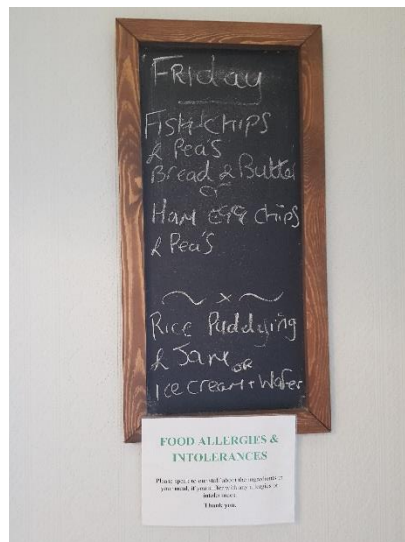 Friday
Fish & Chips
& Pea's
Bread & Butter
or
Ham Egg Chips
& Pea's
~ x ~
Rice Puddying
& Jam or
Ice cream + Wafer
FOOD ALLERGIES &
INTOLERANCES
Please speak to our staff about the ingredients in
your meal, if you suffer with any allergies or
intolerances.
Thank you.